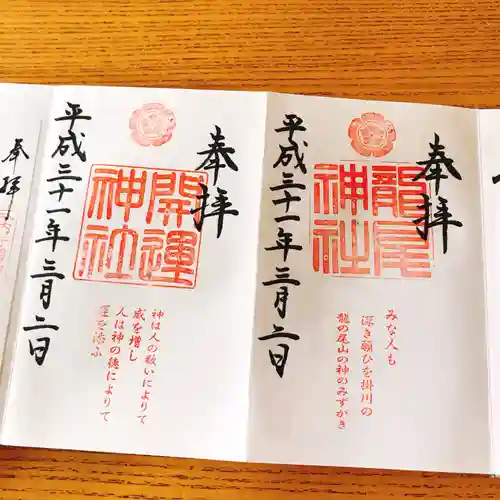 奉拝
龍尾
神社
みな人も
深き願ひを掛川の
龍の尾山の神のみずがき
平成三十一年三月二日
奉拝
開運
神社
神は人の敬いによりて
威を増し
人は神の徳によりて
運を添ふ
平成三十一年三月二日
奉拝